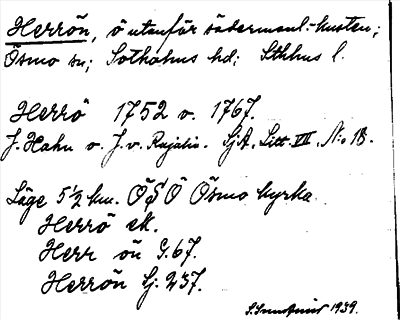 Herrön, ö utanför södermanl.-kusten;
Ösmo sn; Sotholms hd; Sthlms l.
Herrö 1752 o. 1767.
J. Hahn o. J. v. Rajalin. Sj.A. Litt. VII N:o 18.
Läge 5 1/2 km. ÖSÖ Ösmo kyrka
Herrö ek.
Herr ön G.67.
Herrön Sj. 237.
1939.